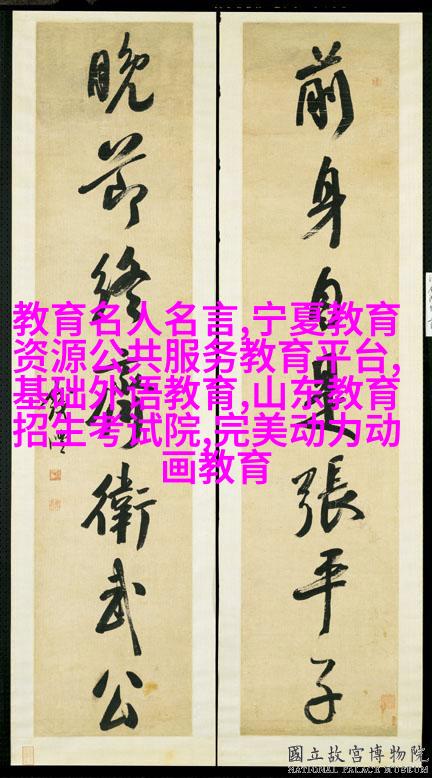 前身自是張平子
晚節終齊衛武公
教育名人名言,宁夏教育
资源公共服务教育平台,
基础外语教育,山东教育
招生考试院,完美动力动
画教育
國立故宮博物院
NATIONAL PALACE MUSEUM